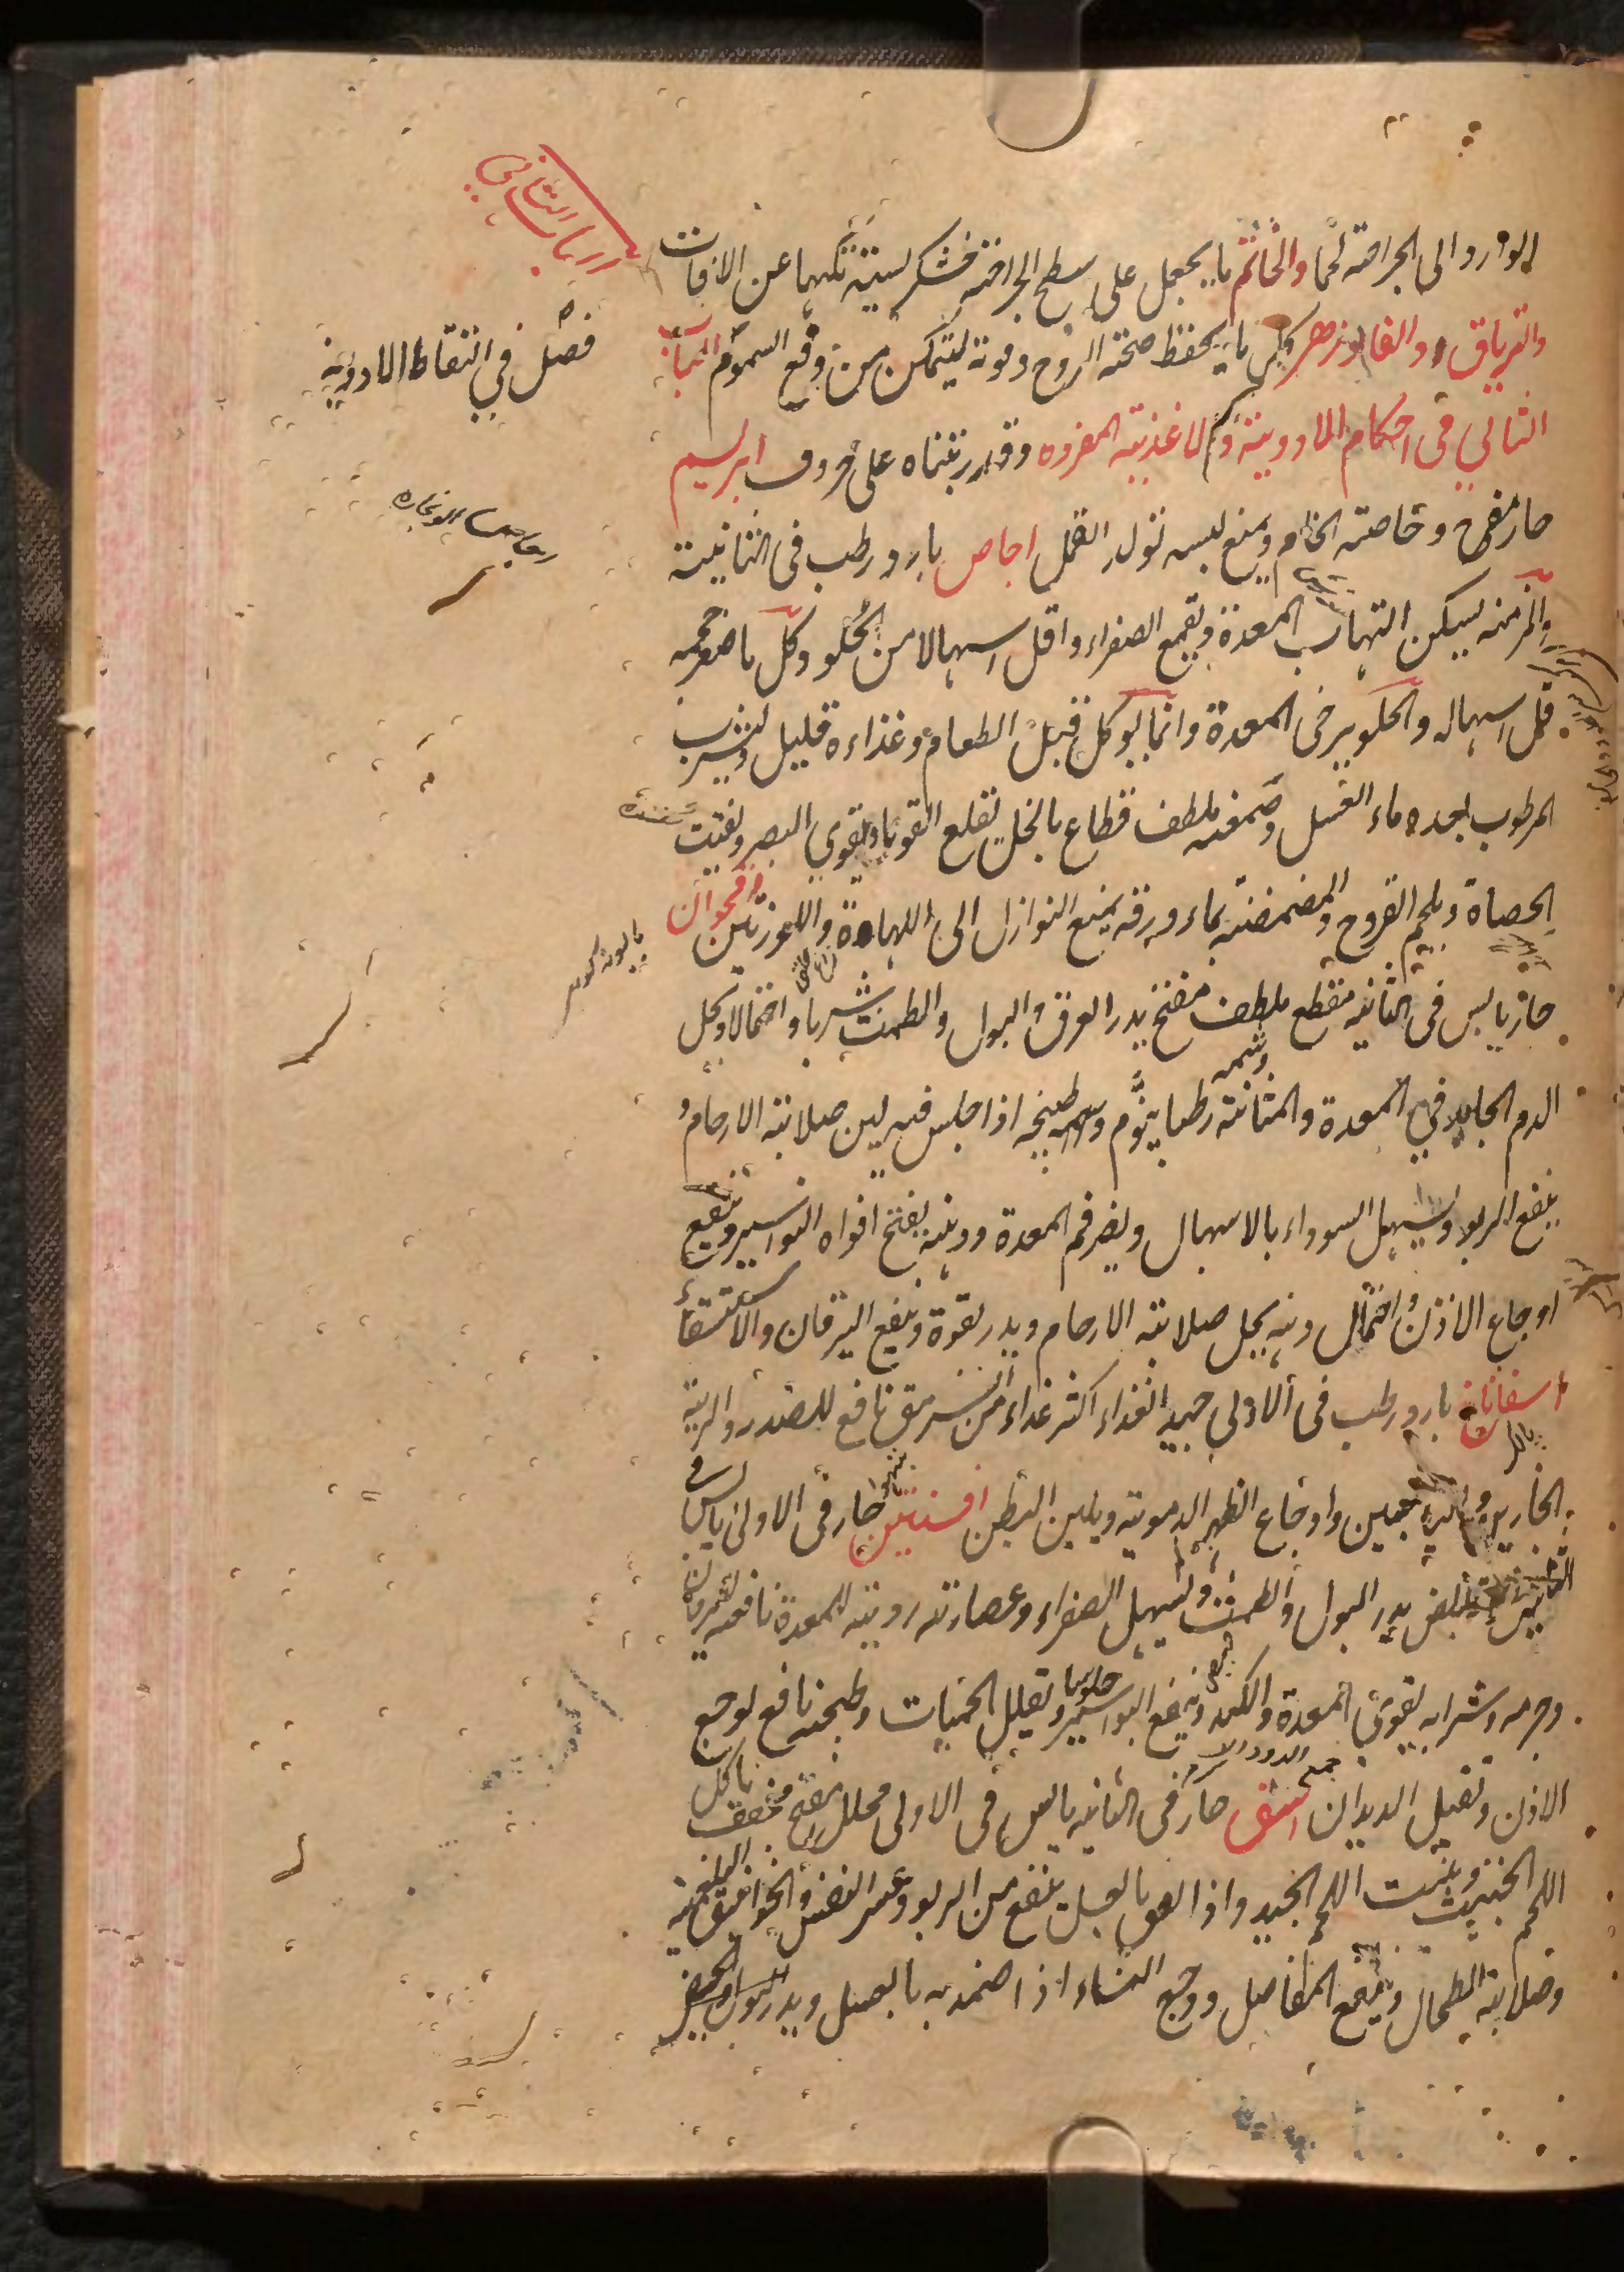 الوارد الى الجراحة لحما والخاتم ما يجعل على سطح الجراحة خشكريشة تكنها عن الافات
والترياق والفادزهر كل ما يحفظ صحة الروح وقوته ليتمكن من دفع السموم الباب
الثاني في احكام الادوية والاغذية المفردة وقد رتبناه على حروف ابريسم
حار مفرح وخاصته الخام ويمنع لبسه تولد القمل اجاص بارد رطب في الثانية
والمز منه يسكن التهاب المعدة ويقمع الصفراء واقل اسهالا من الحلو وكل ما صغر حجمه
قل اسهاله والحلو يرخى المعدة وانما يوكل قبل الطعام وغذاءه قليل وليشرب
المرطوب بعده ماء العسل وصمغه ملطف قطاع بالخل يقلع القوبا ويقوي البصر ويفتت
الحصاة ويلحم القروح والمضمضة بماء ورقه يمنع النوازل الى اللهاة واللوزتين اقحوان
حار يابس في الثانية مقطع ملطف مفتح يدر العرق والبول والطمث شربا واحتمالا ويحل
الدم الجامد في المعدة والمثانة وشمه رطبا ينوم وطبيخه اذا جلس فيه لين صلابة الارحام و
ينفع الربو ويسهل السوداء بالاسهال ويضر فم المعدة ودهنه يفتح افواه البواسير وينفع
اوجاع الاذن واحتمال دهنه يحل صلابة الارحام ويدر بقوة وينفع اليرقان والاستسقاء
اسفاناخ بارد رطب في الاولى جيد الغذاء اكثر غذاء من السرمق نافع للصدر والرية
الحارين واوجاع الظهر الدموية ويلين البطن افسنتين حار في الاولى يابس في
الثانية قابض يدر البول والطمث ويسهل الصفراء وعصارته ردية للمعدة نافعه لليرقان
وجرمه وشرابه يقوى المعدة والكبد وينفع البواسير ويقلل الحميات وطبيخه نافع لوجع
الاذن ويقتل الديدان اشق حار في الثانية يابس في الاولى محلل مفتح مجفف ياكل
اللحم الخبيث وينبت اللحم الجيد واذا لعق بالعسل ينفع من الربو وعسر النفس والخوانيق البلغمية
وصلابة الطحال وينفع المفاصل ووجع النساء اذا ضمد به بالعسل ويدر البول والحيض
الباب الثاني
فصل في التقاط الادوية